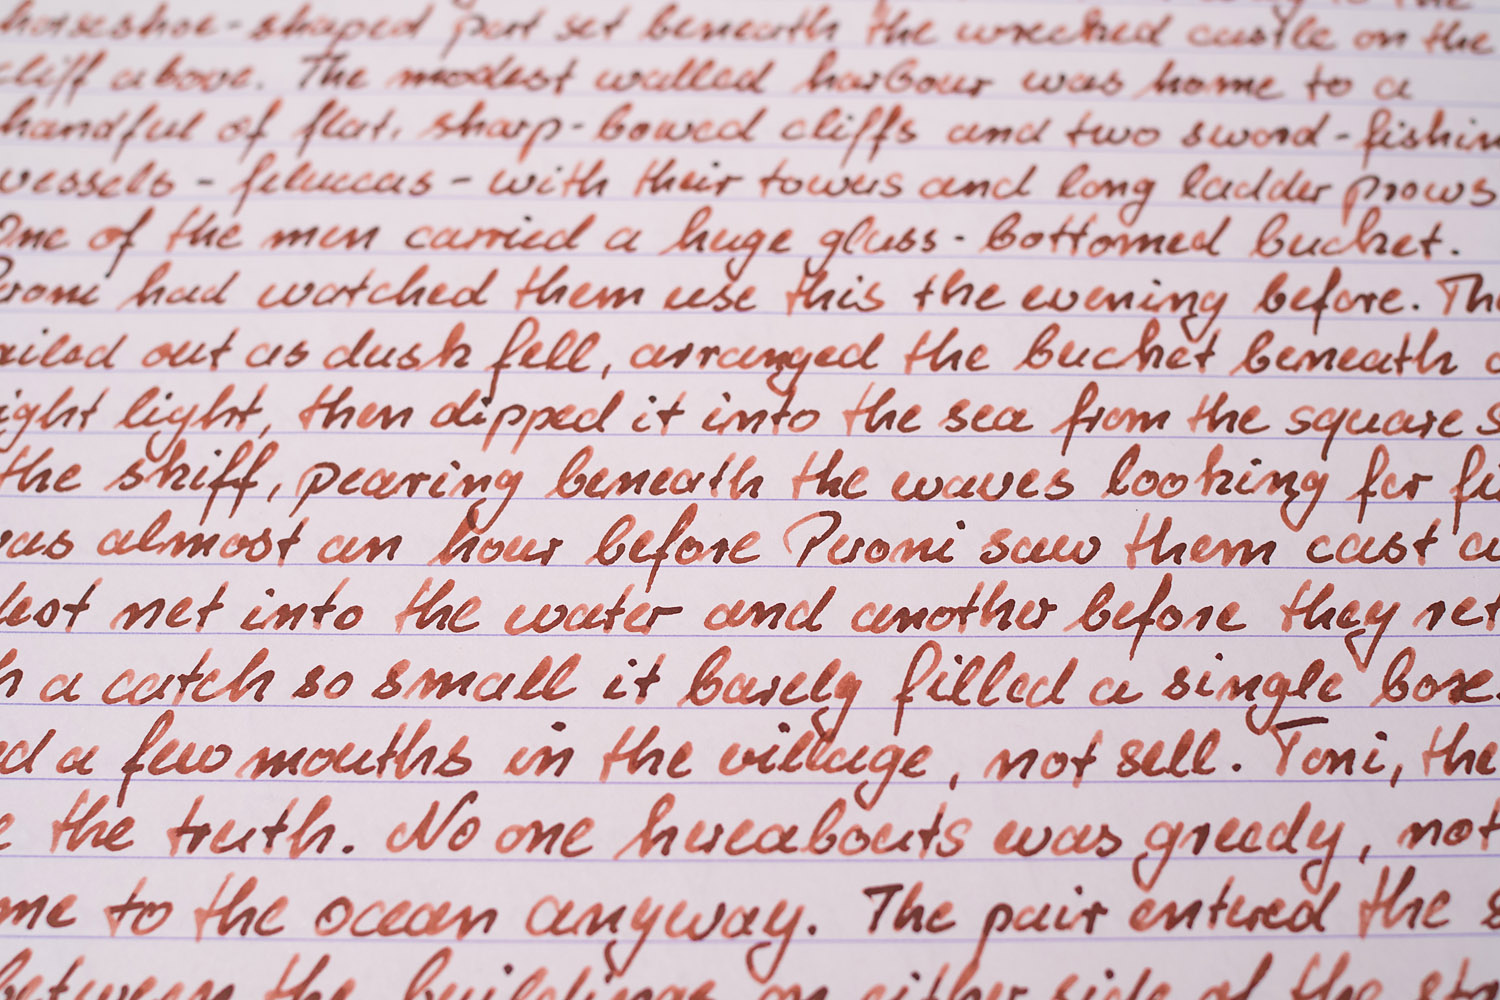 horseshoe-shaped port set beneath the wrecked castle on the
cliff above. The modest walled harbour was home to a
handful of flat, sharp-bowed cliffs and two sword-fishin
vessels - feluccas - with their towers and long ladder prows
One of the men carried a huge glass-bottomed bucket.
Peroni had watched them use this the evening before. The
ailed out as dusk fell, arranged the bucket beneath a
ight light, then dipped it into the sea from the square s
the skiff, pearing beneath the waves looking for fi
was almost an hour before Peroni saw them cast a
dest net into the water and another before they ret
h a catch so small it barely filled a single box.
ed a few mouths in the village, not sell. Toni, the
e the truth. No one hereabouts was greedy, not
me to the ocean anyway. The pair entered the s
between the buildings on either side of the